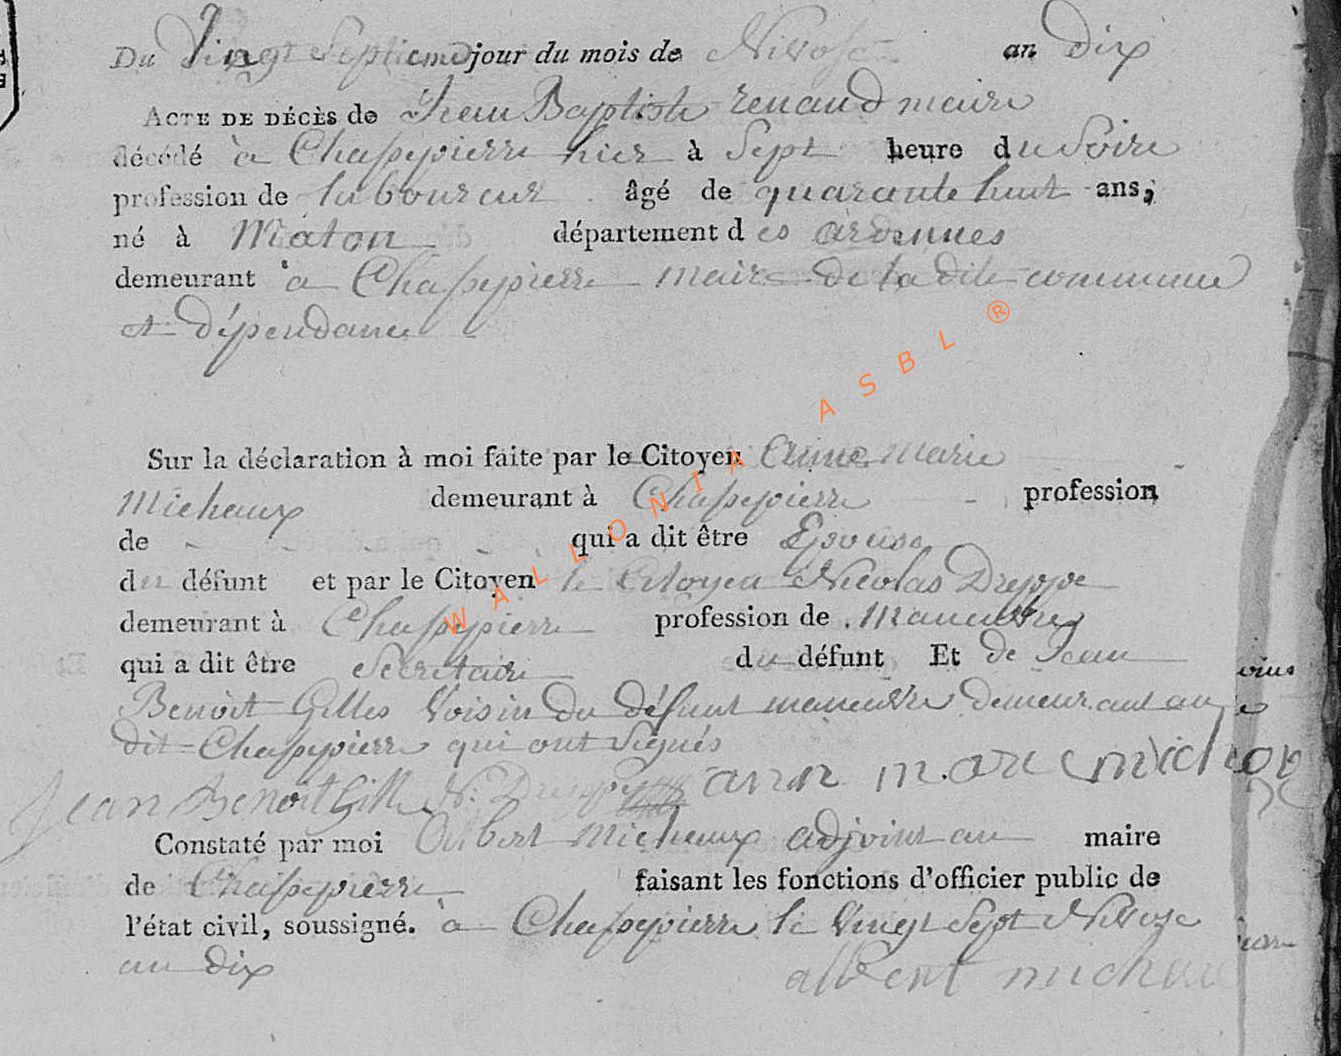 Du Vingt Septieme jour du mois de Nivose an dix
ACTE DE DÉCÈS de Jean Baptiste renaud maire
décédé à Chassepierre hier à Sept heure du Soire
profession de laboureur âgé de quarante huit ans,
né à Maton département des ardennes
demeurant à Chassepierre maire de la dite commune
et dépendance
Sur la déclaration à moi faite par le Citoyen Anne Marie
Michaux demeurant à Chassepierre profession
de qui a dit être Epouse
du défunt et par le Citoyen le Citoyen Nicolas
demeurant à Chassepierre profession de
qui a dit être Secretaire du défunt Et de Jean
Benoit Gilles Voisin du défunt demeurant au
dit Chassepierre qui ont Signés
Jean Benoit Gille N. ann marie michou
Constaté par moi michaux adjoint au maire
de Chassepierre faisant les fonctions d'officier public de
l'état civil, soussigné. à Chassepierre le Vingt Sept Nivose
an dix
albert michau
WALLONIA ASBL ®